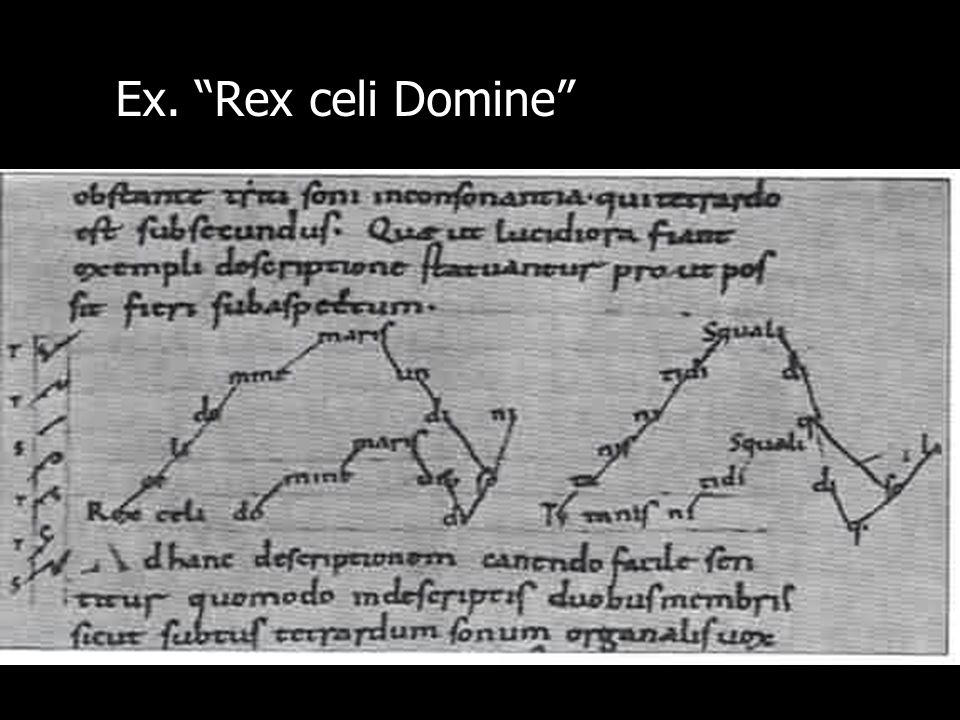 Ex. “Rex celi Domine”
obstante soni inconsonantia. qui tetrardo
est subsecundus. Quae ut lucidiora fiant
exempli descriptione statuantur pro ut pos
sit fieri sub aspectum.
T T S T T S
maris un di so ni
do mine
Rex celi do mine maris un di so
Squali di
ti di ni
Ti tanis ni tidi Squali di q. so li
hanc descriptionem canendo facile sen
titur quomodo in descriptis duobus membris
sicut subtus tetrardum sonum organalis uox